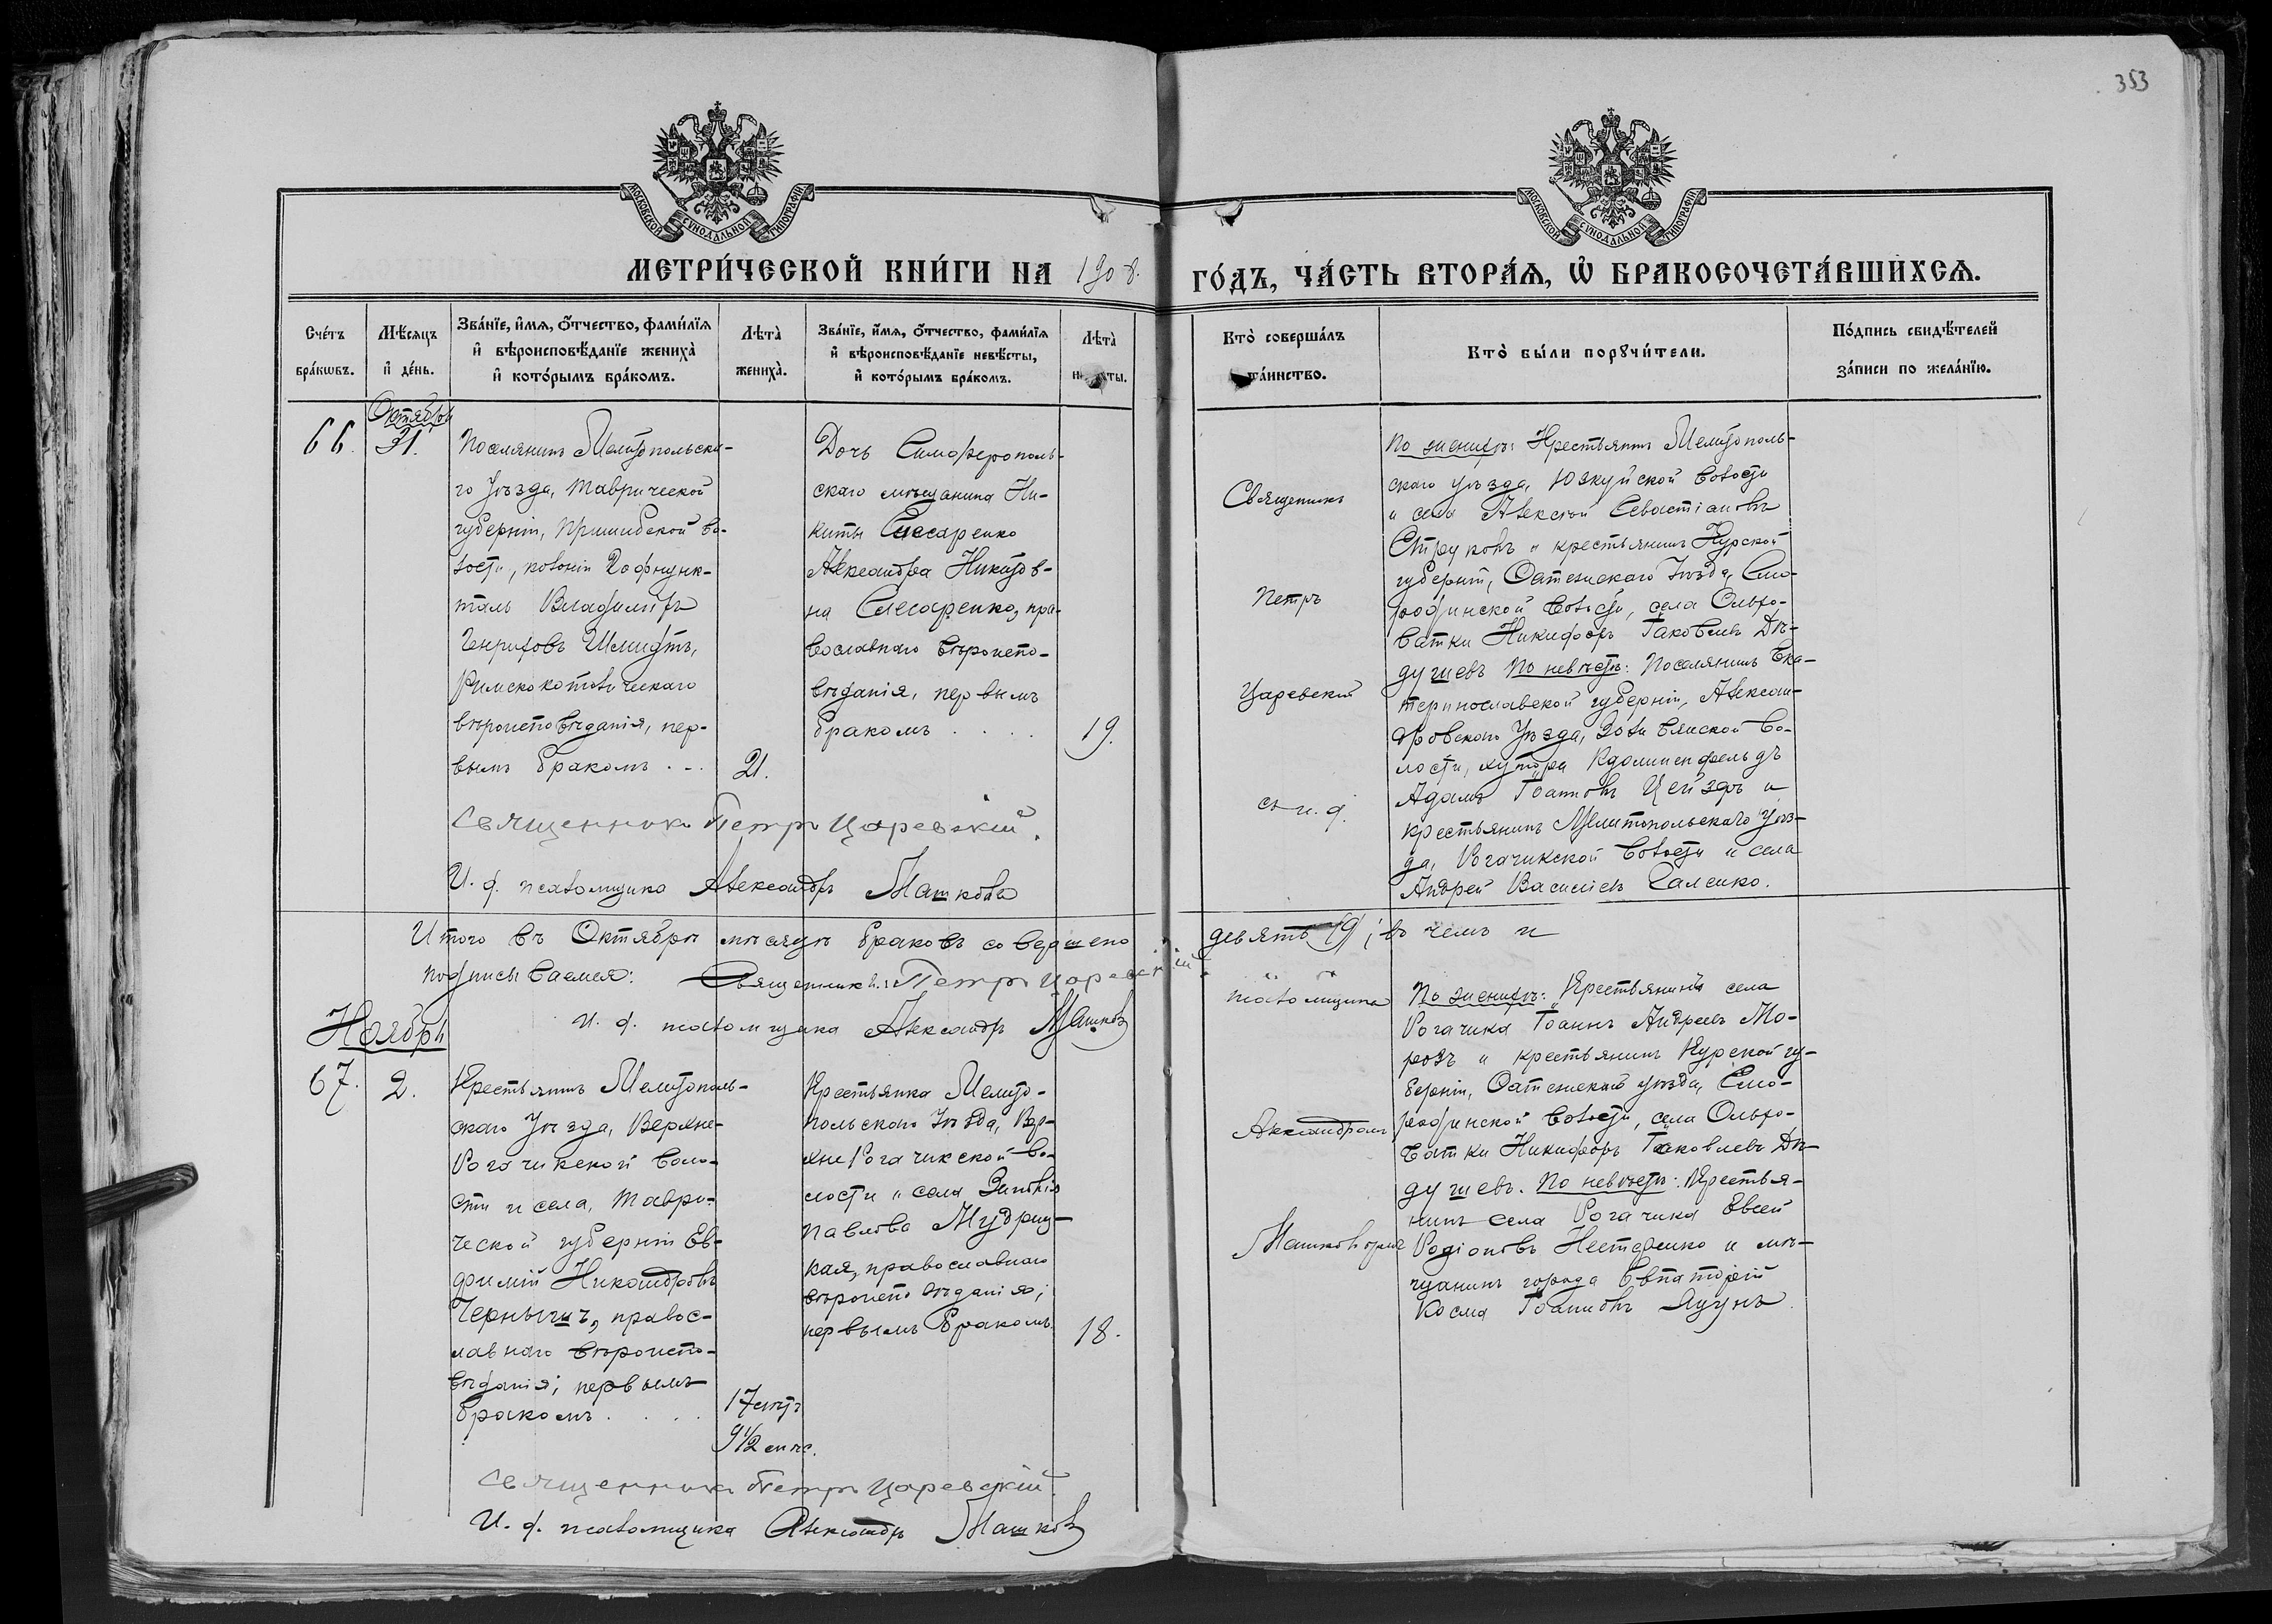 353
МОСКОВСКОЙ СѴНОДАЛЬНОЙ ТИПОГРАФІИ
МОСКОВСКОЙ СѴНОДАЛЬНОЙ ТИПОГРАФІИ
МЕТРИ́ЧЕСКОЙ КНИ́ГИ НА 1908.
ГО́ДЪ, ЧА́СТЬ ВТОРА́Я, Ѡ БРАКОСОЧЕТА́ВШИХСЯ.
Сче́тъ
бра́кѡвъ.
Мѣ́сяцъ
и де́нь.
Зва́нїе, и́мя, о́тчество, фами́лїя
и вѣроисповѣ́данїе жениха̀
и кото́рымъ бра́комъ.
Лѣта̀
жениха̀.
Зва́нїе, и́мя, о́тчество, фами́лїя
и вѣроисповѣ́данїе невѣ́сты,
и кото́рымъ бра́комъ.
Лѣта̀
Кто̀ соверша́лъ
та́инство.
Кто̀ бы́ли порꙋчи́тели.
По́дпись свидѣ́телей
за́писи по жела́нїю.
66.
Октябрь
31.
Поселянинъ Мелитопольска-
го уѣзда, Таврической
губерніи, Пришибской во-
лости, колоніи Гофнунк-
таль Владиміръ
Генриховъ Шмидтъ,
Римскокатолическаго
вѣроисповѣданія, пер-
вымъ бракомъ . . .
21.
Дочь Симферополь-
скаго мѣщанина Ни-
киты Слесаренко
Александра Никитов-
на Слесаренко, пра-
вославнаго вѣроиспо-
вѣданія, первымъ
бракомъ . . . .
19.
Священникъ
Петръ
Царевскій
съ и. д.
По женихѣ: Крестьянинъ Мелитополь-
скаго уѣзда, Юзкуйской волости
и села Алексѣй Севастіановъ
Струковъ и крестьянинъ Курской
губерніи, уѣзда,
волости, села Ольхо-
ватки Никифоръ Іаковлевъ Дѣ-
душевъ По невѣстѣ: Поселянинъ Ека-
теринославской губерніи, Алексан-
дровскаго уѣзда, во-
лости, хутора
Адамъ Іоанновъ и
крестьянинъ Мелитопольскаго уѣз-
да, Рогачикской волости и села
Андрей Василіевъ Саленко.
Священникъ Петръ Царевскій.
И. д. псаломщика Александръ Машковъ
Итого въ Октябрѣ мѣсяцѣ браковъ совершено девять (9), въ чемъ и
подписываемся: Священникъ: Петръ Царевскій
И. д. псаломщика Александръ Машковъ
Ноябрь
67.
2.
Крестьянинъ Мелитополь-
скаго уѣзда, Верхне-
Рогачикской воло-
сти и села, Таври-
ческой губерніи Ев-
фимій Никандровъ
Чернышъ, правос-
лавнаго вѣроиспо-
вѣданія; первымъ
бракомъ . . . .
17 лѣтъ
9 1/2 мѣс.
Крестьянка Мелито-
польскаго уѣзда, Вер-
хнерогачикской во-
лости и села Зиновія
Павлова Мудриц-
кая, православнаго
вѣроисповѣданія;
первымъ бракомъ
18.
псаломщика
Александромъ
Машковымъ
По женихѣ: Крестьянинъ села
Рогачика Іоаннъ Андреевъ Мо-
розъ и крестьянинъ Курской гу-
берніи, уѣзда,
волости, села Ольхо-
ватки Никифоръ Іаковлевъ Дѣ-
душевъ. По невѣстѣ: Крестья-
нинъ села Рогачика Евсей
Родіоновъ Нестеренко и мѣ-
щанинъ города Евпаторіи
Косма Іоанновъ Яцунъ.
Священникъ Петръ Царевскій.
И. д. псаломщика Александръ Машковъ